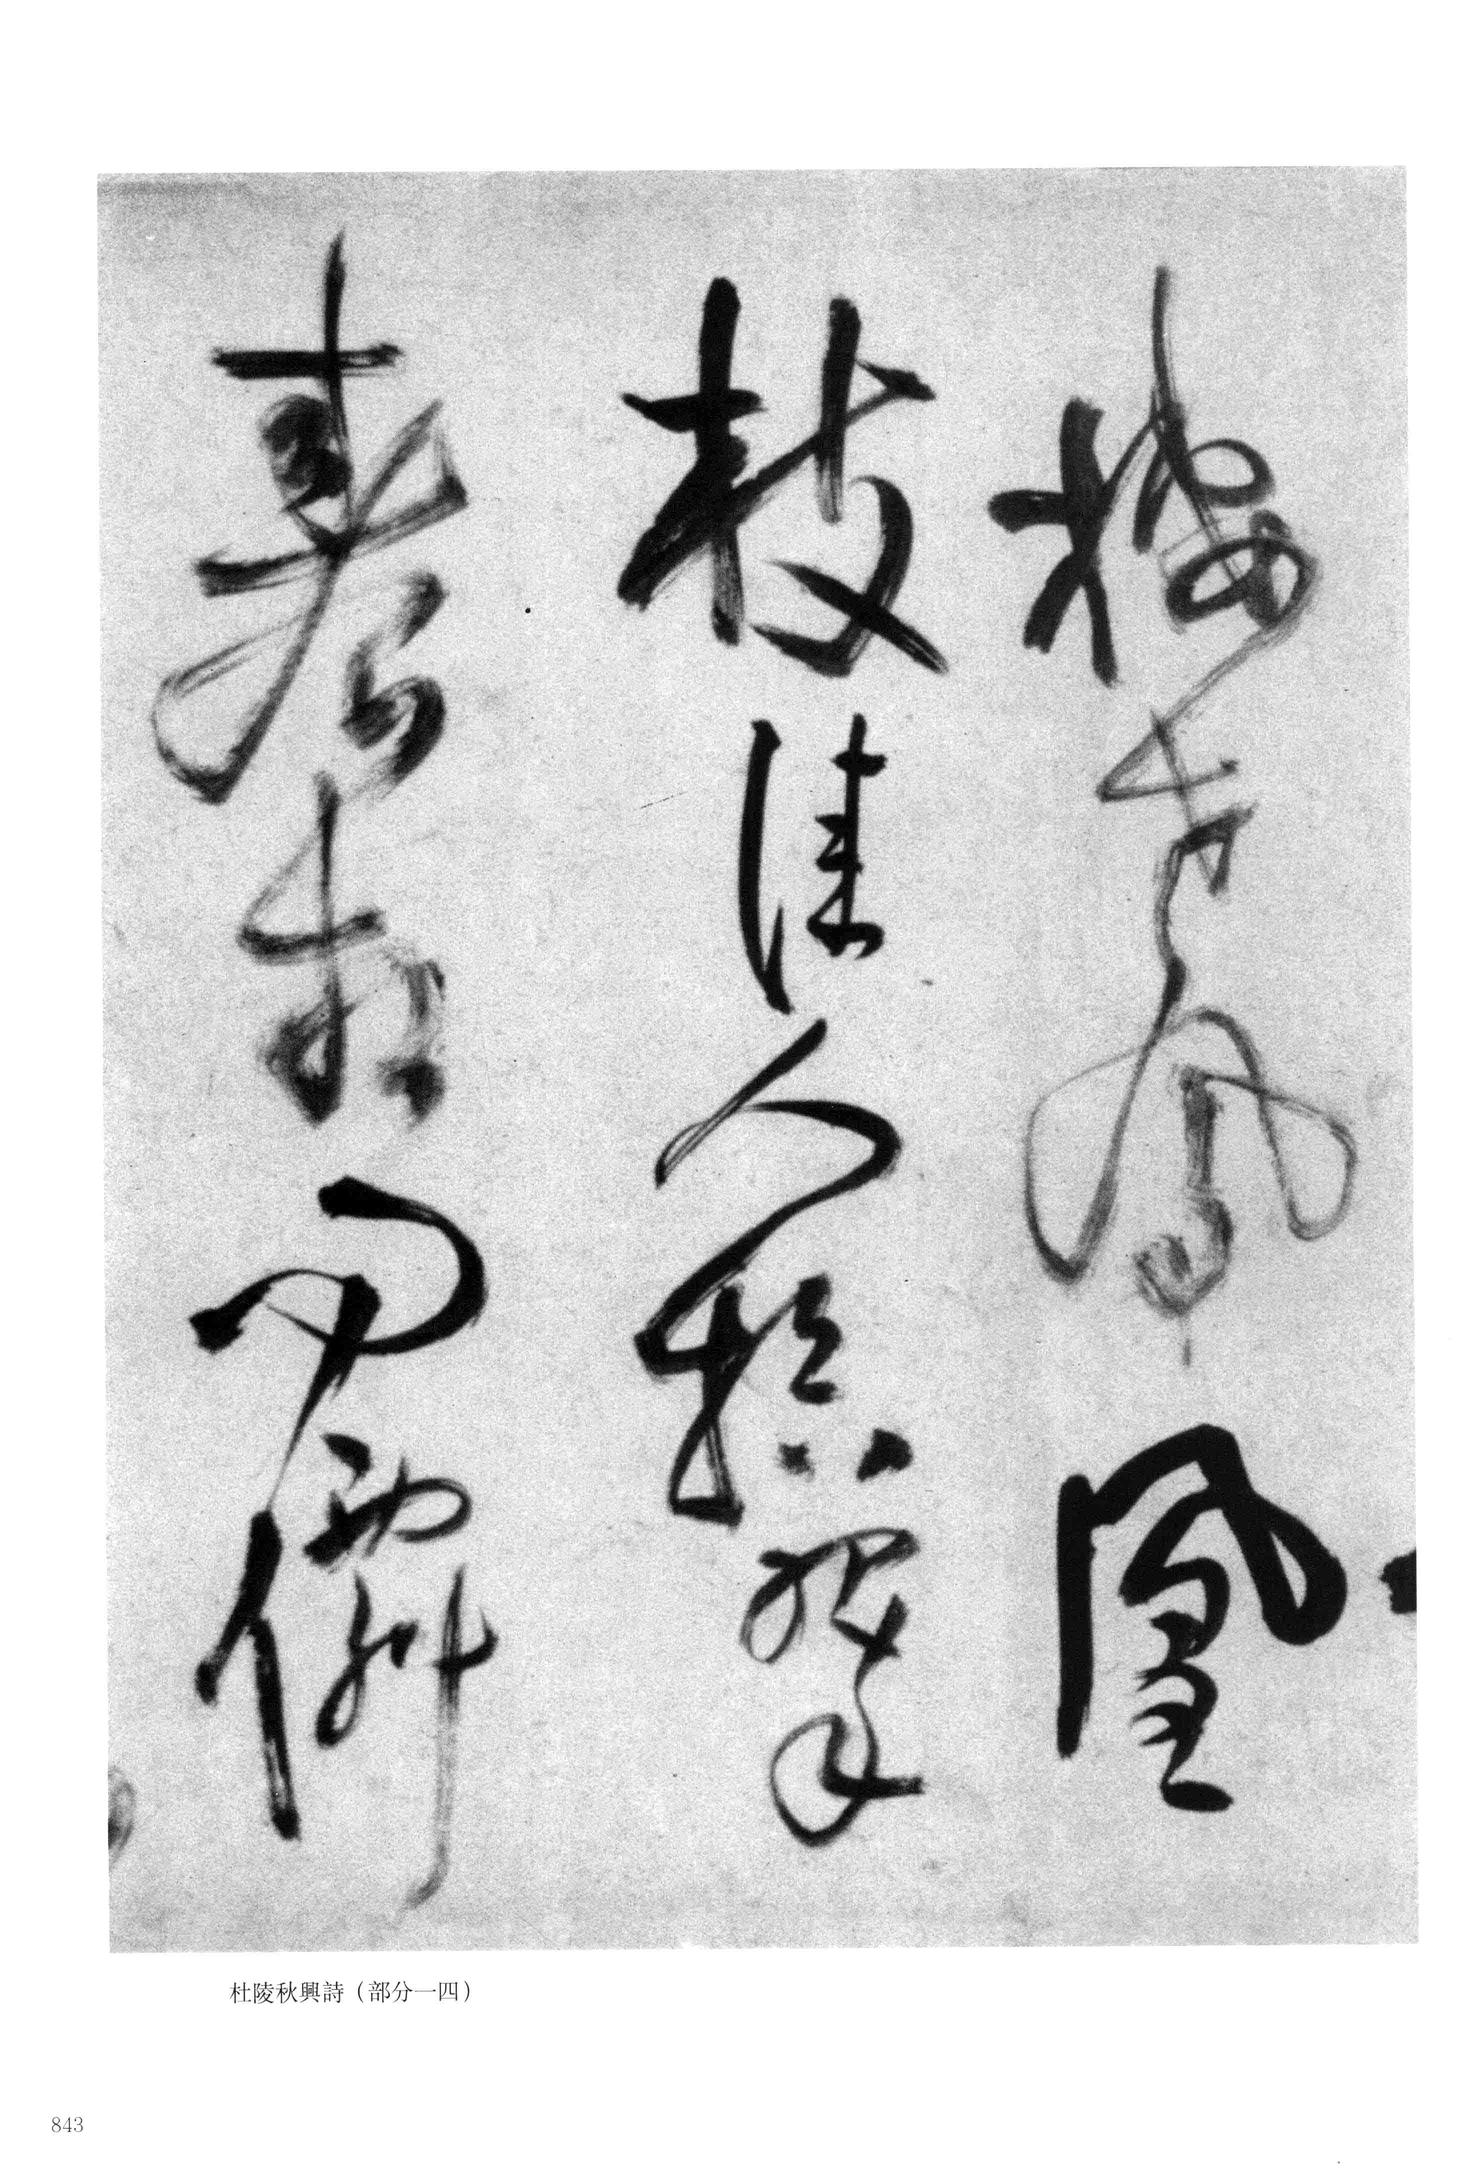 棲老鳳凰
枝佳人拾翠
春相問僊
杜陵秋興詩（部分一四）
843